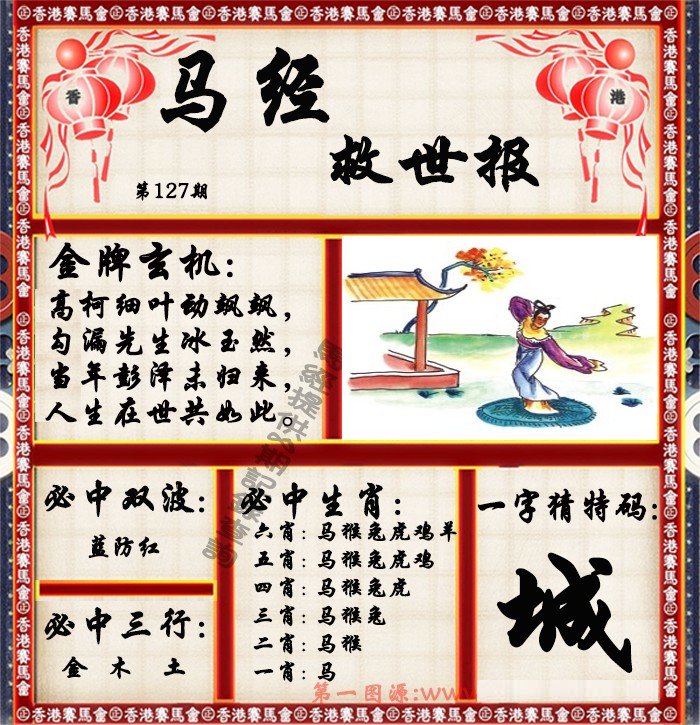 香港賽馬會
香
港
马经
救世报
第127期
金牌玄机：
高柯细叶动飒飒，
勾漏先生冰玉然，
当年彭泽未归来，
人生在世共如此。
必中双波：
蓝防红
必中三行：
金 木 土
必中生肖：
六肖：马猴兔虎鸡羊
五肖：马猴兔虎鸡
四肖：马猴兔虎
三肖：马猴兔
二肖：马猴
一肖：马
一字猜特码：
城
第一图源:www.